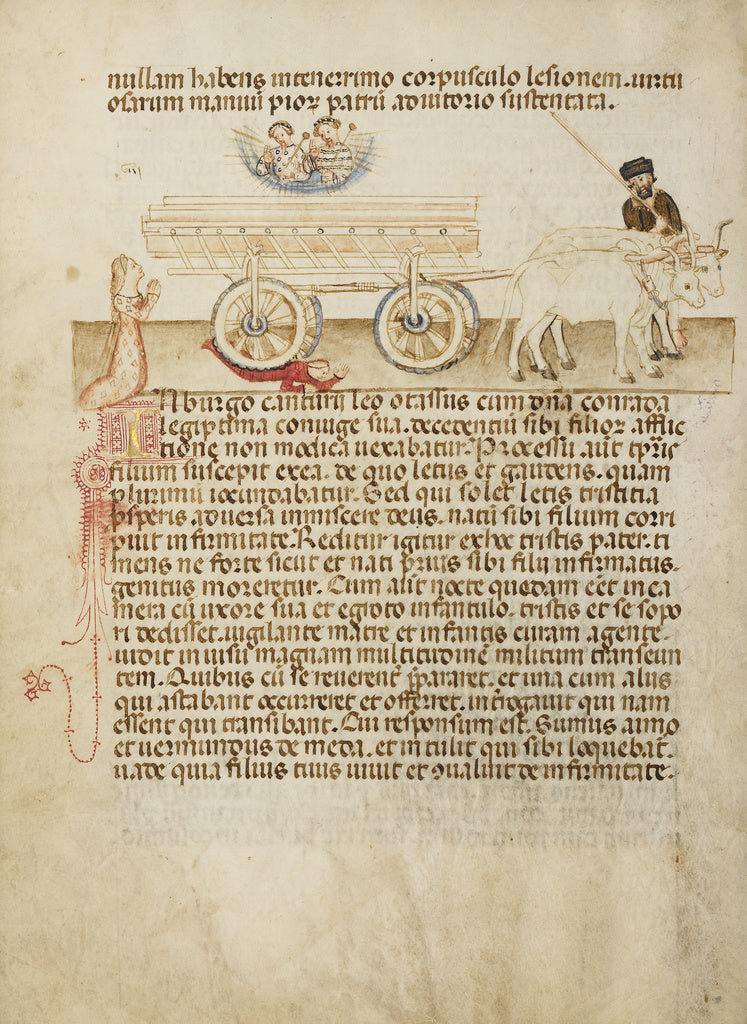 nullam habens in tenerrimo corpusculo lesionem. uirtu
osarum manuū pioꝝ patrū adiutorio sustentata.
IN burgo canturij leo otassus cum dn̄a conrada
legiptima coniuge sua. decedentiū sibi filioꝝ afflic
tione non modica uexabatur. Processu aūt tp̄ris
filium suscepit ex ea. de quo letus et gaudens. quam
plurimū iocundabatur. Sed qui solet letis tristitia
ꝓsperis aduersa inmiscere deus. natū sibi filium corri
puit infirmitate. Redditur igitur ex hoc tristis pater. ti
mens ne forte sicut et nati prius sibi filij infirmatus.
genitus moreretur. Cum aūt nocte quadam eēt in ca
mera cū uxore sua et egroto infantulo. tristis et se sopo
ri dedisset. uigilante matre et infantis curam agente.
uidit in uisu magnam multitudinē militum transeun
tem. Quibus cū se reuerent̄ p̄pararet. et una cum alijs
qui astabant occurreret et offerret. int̄rogauit qui nam
essent qui transibant. Cui responsum est. Sumus aimo
et uermundus de meda. et intulit qui sibi loquebat̄.
uade quia filius tuus uiuit et ꝯualuit de infirmitate.